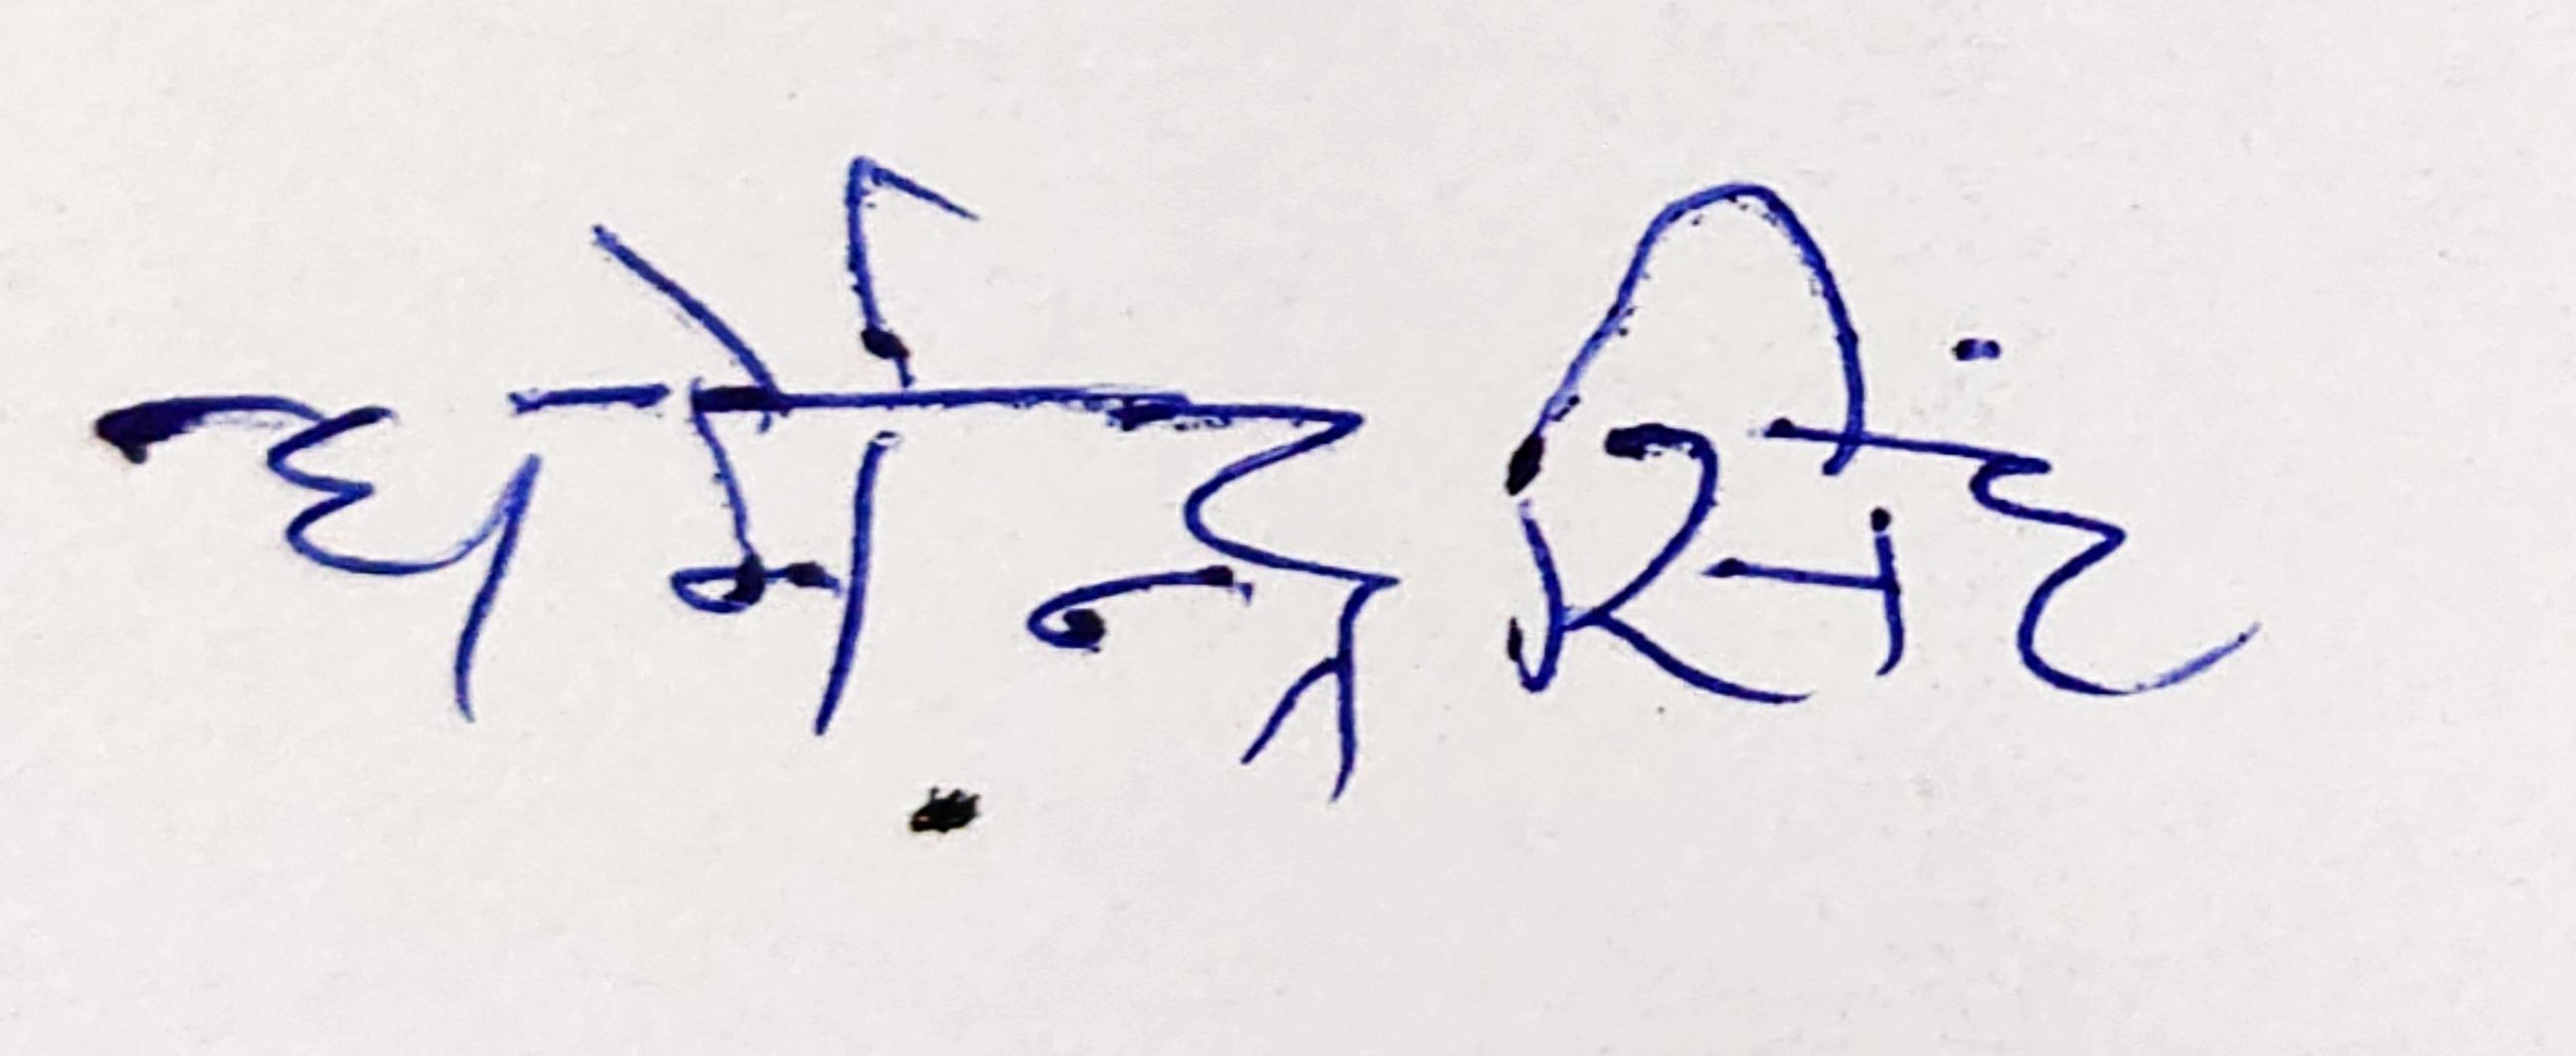 धर्मेन्द्र सिंह